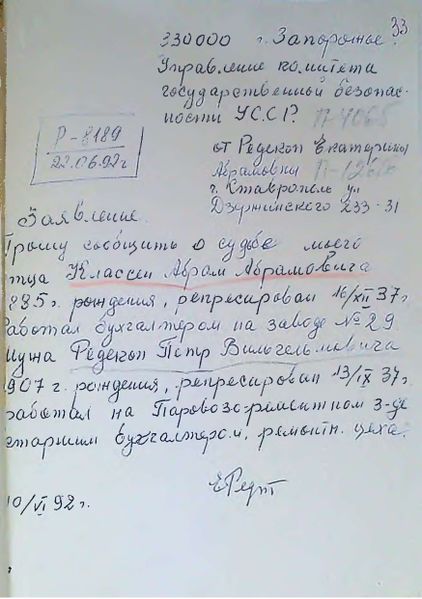 33
330000 г. Запорожье.
Управление комитета
государственной безопас-
ности УССР.
П-4065
Р-8189
22.06.92г
от Редекоп Екатерины
Абрамовны
г. Ставрополь ул
Дзержинского 233-31
Заявление.
Прошу сообщить о судьбе моего
тца Классен Абрам Абрамовича
885г. рождения, репресирован 16/XII 37г
Работал бухгалтером на заводе № 29.
мужа Редекоп Петр Вильгельмовича
907 г. рождения, репресирован 13/IX 37г.
работал на Паровозо-ремонтном з-де
старшим бухгалтером, ремонтн. цеха.
10/VI 92г.